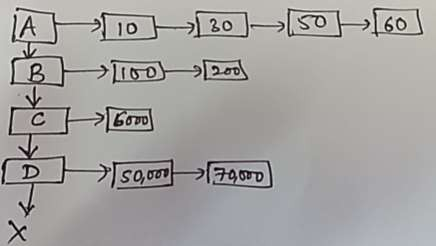 A 10 30 50 60
B 100 200
C 6000
D 50,000 70,000
X